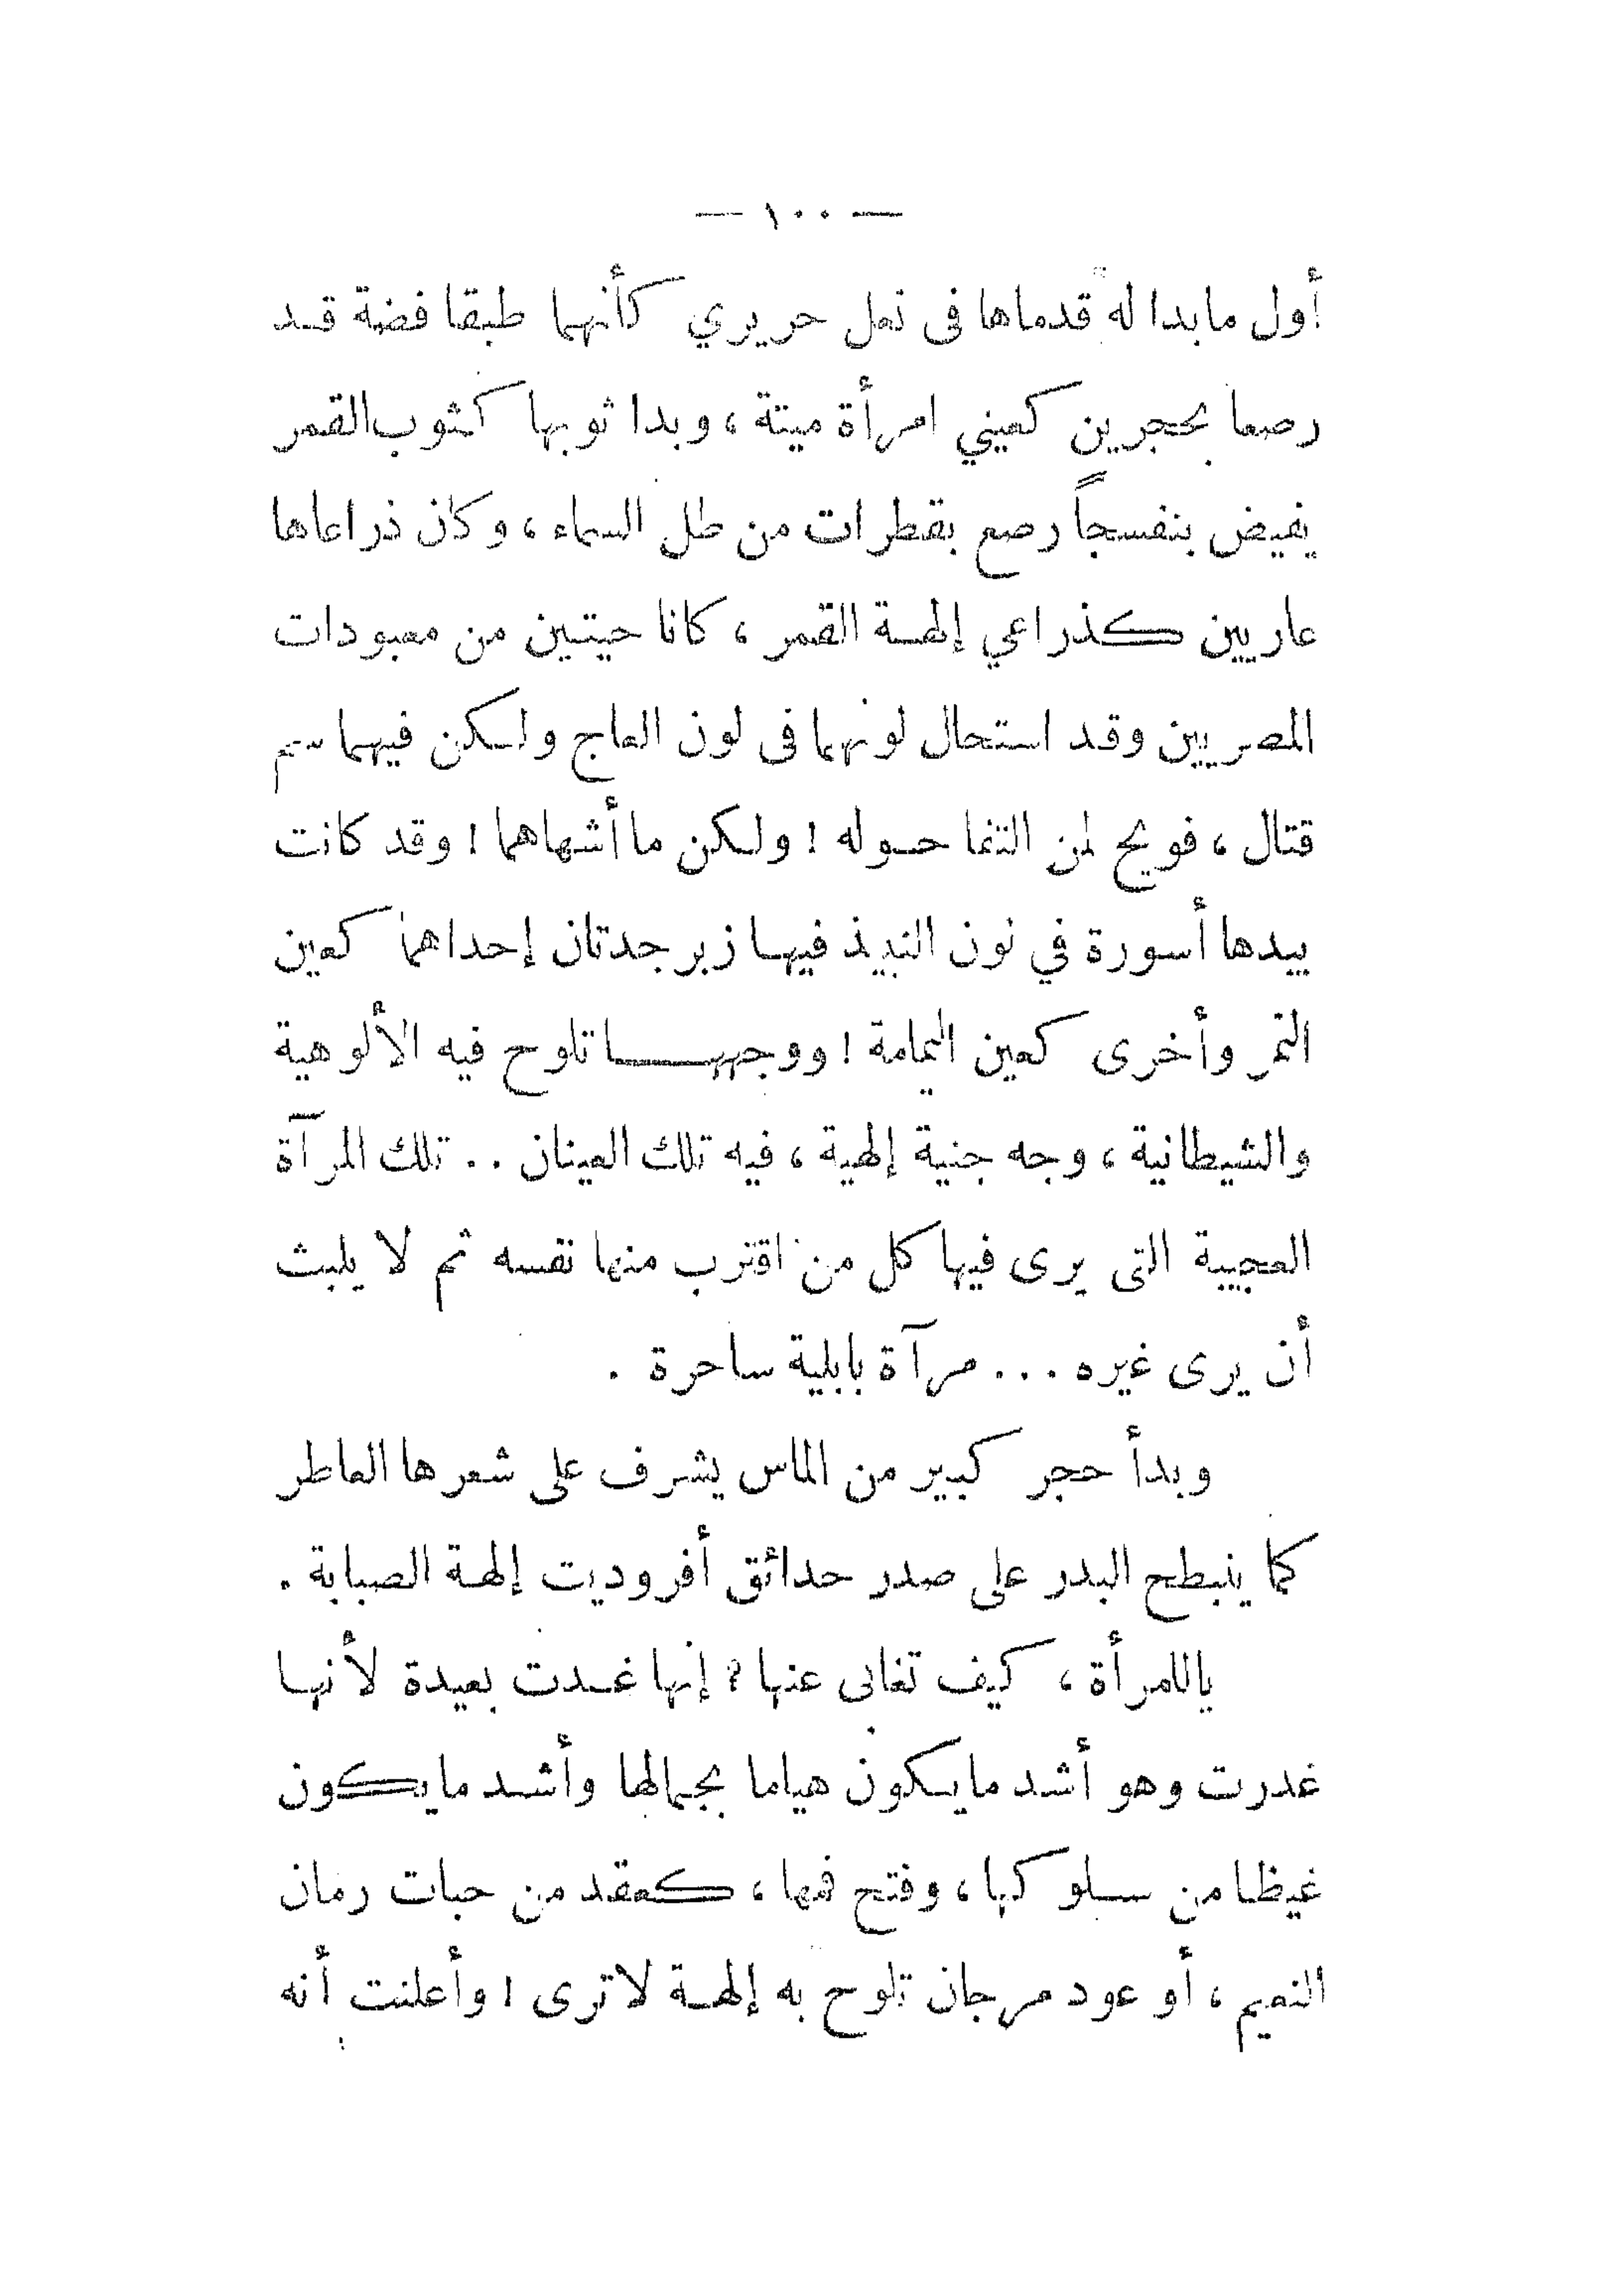 — ١٠٠ —
أول مابدا له قدماها فى نعل حريري كأنهما طبقا فضة قد
رصعا بحجرين كعيني امرأة ميتة ، وبدا ثوبها كثوب القمر
يفيض بنفسجاً رصع بقطرات من طل السماء ، وكان ذراعاها
عاريين كذراعي إلهة القمر ، كانا حيتين من معبودات
المصريين وقد استحال لونهما فى لون العاج ولكن فيهما سم
قتال ، فويح لمن التفا حوله ! ولكن ما أشهاهما ! وقد كانت
بيدها أسورة في لون النبيذ فيها زبرجدتان إحداهما كعين
النمر وأخرى كعين اليمامة ! ووجهها تلوح فيه الألوهية
والشيطانية ، وجه جنية إلهية ، فيه تلك العينان .. تلك المرآة
العجيبة التى يرى فيها كل من اقترب منها نفسه ثم لا يلبث
أن يرى غيره ... مرآة بابلية ساحرة .
وبدأ حجر كبير من الماس يشرف على شعرها العاطر
كما ينبطح البدر على صدر حدائق أفروديت إلهة الصبابة .
ياللمرأة ، كيف تغابى عنها ؟ إنها غدت بعيدة لأنها
غدرت وهو أشد مايكون هياما بجمالها وأشد مايكون
غيظا من سلوكها ، وفتح فمها ، كعقد من حبات رمان
النعيم ، أو عود مرجان تلوح به إلهة لاترى ! وأعلنت أنه